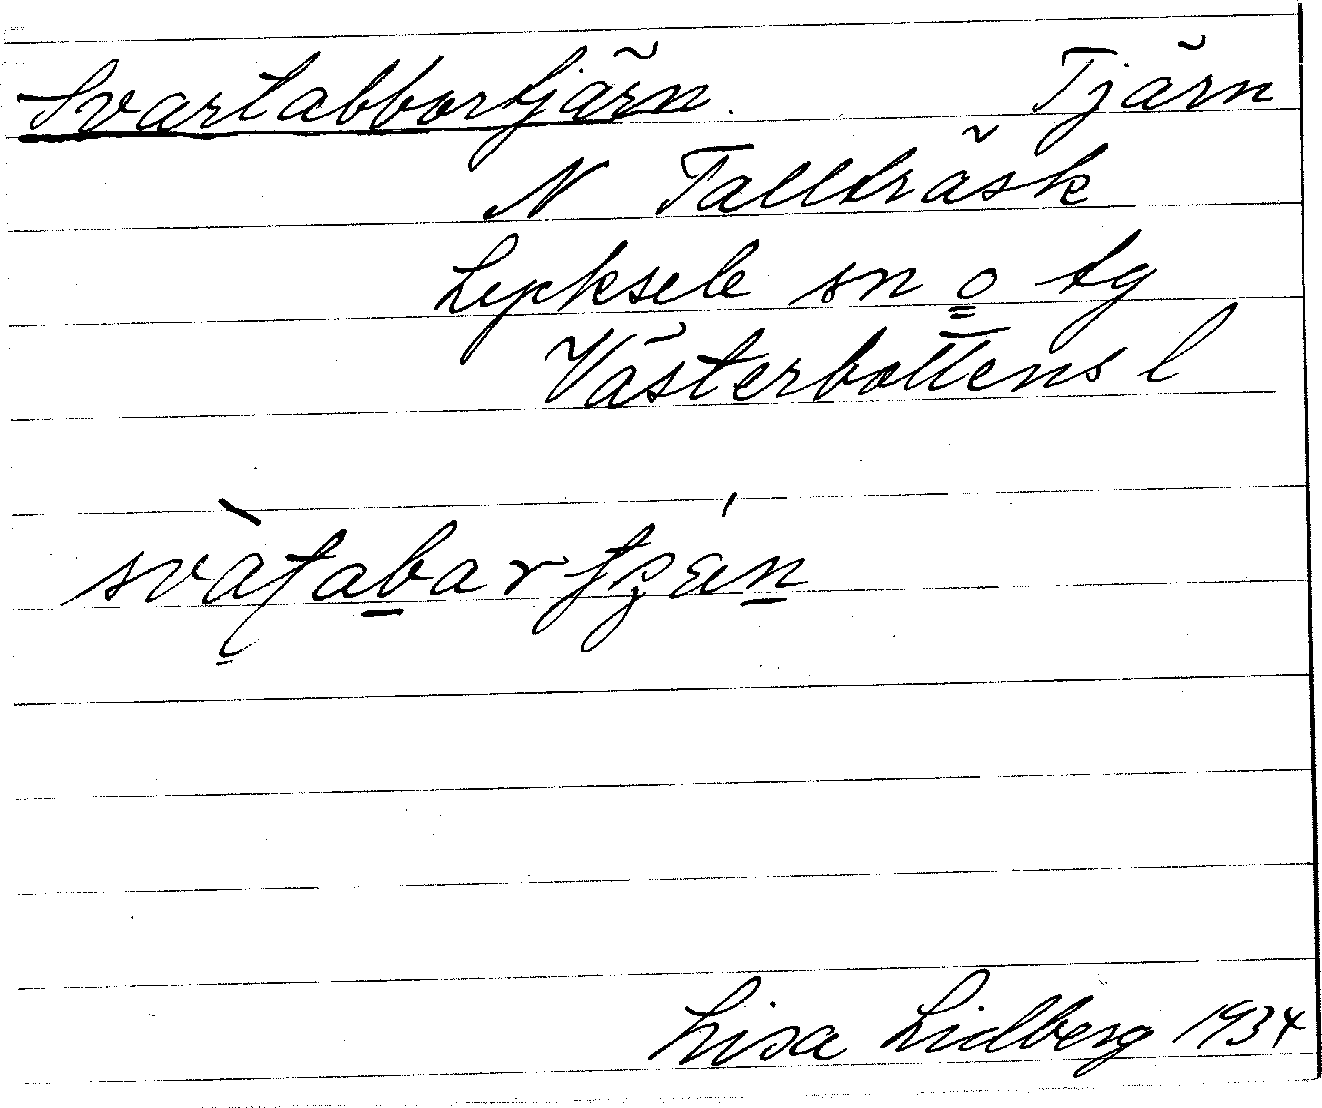 Svartabbortjärn. Tjärn
N Tallträsk
Lycksele sn o tg
Västerbottens l
Lisa Lidberg 1934